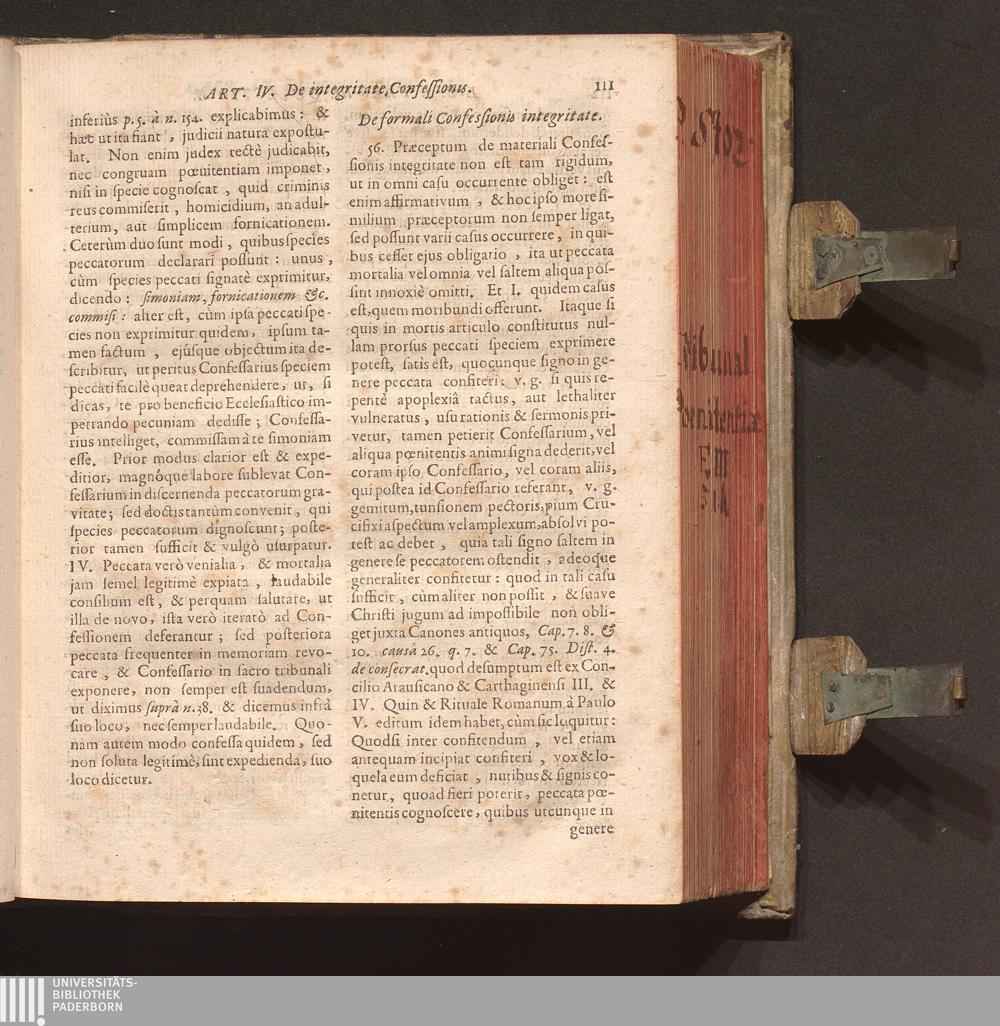 ART. IV. De integritate Confeſſionis. 111
inferiùs p. 5. à n. 154. explicabimus: &
hæc ut ita fiant, judicii natura expoſtu-
lat. Non enim judex rectè judicabit,
nec congruam pœnitentiam imponet,
niſi in ſpecie cognoſcat, quid criminis
reus commiſerit, homicidium, an adul-
terium, aut ſimplicem fornicationem.
Ceterùm duo ſunt modi, quibus ſpecies
peccatorum declarari poſſunt: unus,
cùm ſpecies peccati ſignatè exprimitur,
dicendo: ſimoniam, fornicationem &c.
commiſi: alter eſt, cùm ipſa peccati ſpe-
cies non exprimitur quidem, ipſum ta-
men factum, ejúſque objectum ita de-
ſcribitur, ut peritus Confeſſarius ſpeciem
peccati facilè queat deprehendere, ut, ſi
dicas, te pro beneficio Eccleſiaſtico im-
petrando pecuniam dediſſe; Confeſſa-
rius intelliget, commiſſam à te ſimoniam
eſſe. Prior modus clarior eſt & expe-
ditior, magnóque labore ſublevat Con-
feſſarium in diſcernenda peccatorum gra-
vitate; ſed doctis tantùm convenit, qui
ſpecies peccatorum dignoſcunt; poſte-
rior tamen ſufficit & vulgò uſurpatur.
IV. Peccata verò venialia, & mortalia
jam ſemel legitimè expiata, laudabile
conſilium eſt, & perquam ſalutare, ut
illa de novo, iſta verò iteratò ad Con-
feſſionem deferantur; ſed poſteriora
peccata frequenter in memoriam revo-
care, & Confeſſario in ſacro tribunali
exponere, non ſemper eſt ſuadendum,
ut diximus ſuprà n. 38. & dicemus infrà
ſuo loco, nec ſemper laudabile. Quo-
nam autem modo confeſſa quidem, ſed
non ſoluta legitimè, ſint expedienda, ſuo
loco dicetur.
De formali Confeſſionis integritate.
56. Præceptum de materiali Confeſ-
ſionis integritate non eſt tam rigidum,
ut in omni caſu occurrente obliget: eſt
enim affirmativum, & hoc ipſo more ſi-
milium præceptorum non ſemper ligat,
ſed poſſunt varii caſus occurrere, in qui-
bus ceſſet ejus obligatio, ita ut peccata
mortalia vel omnia vel ſaltem aliqua poſ-
ſint innoxiè omitti. Et I. quidem caſus
eſt, quem moribundi offerunt. Itaque ſi
quis in mortis articulo conſtitutus nul-
lam prorſus peccati ſpeciem exprimere
poteſt, ſatis eſt, quocunque ſigno in ge-
nere peccata confiteri: v. g. ſi quis re-
pentè apoplexiâ tactus, aut lethaliter
vulneratus, uſu rationis & ſermonis pri-
vetur, tamen petierit Confeſſarium, vel
aliqua pœnitentis animi ſigna dederit, vel
coram ipſo Confeſſario, vel coram aliis,
qui poſtea id Confeſſario referant, v. g.
gemitum, tunſionem pectoris, pium Cru-
cifixi aſpectum vel amplexum, abſolvi po-
teſt ac debet, quia tali ſigno ſaltem in
genere ſe peccatorem oſtendit, adeoque
generaliter confitetur: quod in tali caſu
ſufficit, cùm aliter non poſſit, & ſuave
Chriſti jugum ad impoſſibile non obli-
get juxta Canones antiquos, Cap. 7. 8. &
10. cauſâ 26. q. 7. & Cap. 75. Diſt. 4.
de conſecrat. quod deſumptum eſt ex Con-
cilio Arauſicano & Carthaginenſi III. &
IV. Quin & Rituale Romanum à Paulo
V. editum idem habet, cùm ſic loquitur:
Quodſi inter confitendum, vel etiam
antequam incipiat confiteri, vox & lo-
quela eum deficiat, nutibus & ſignis co-
netur, quoad fieri poterit, peccata pœ-
nitentis cognoſcere, quibus utcunque in
genere
P. Stoz
Tribunal
Poenitentiæ
UNIVERSITÄTS-
BIBLIOTHEK
PADERBORN